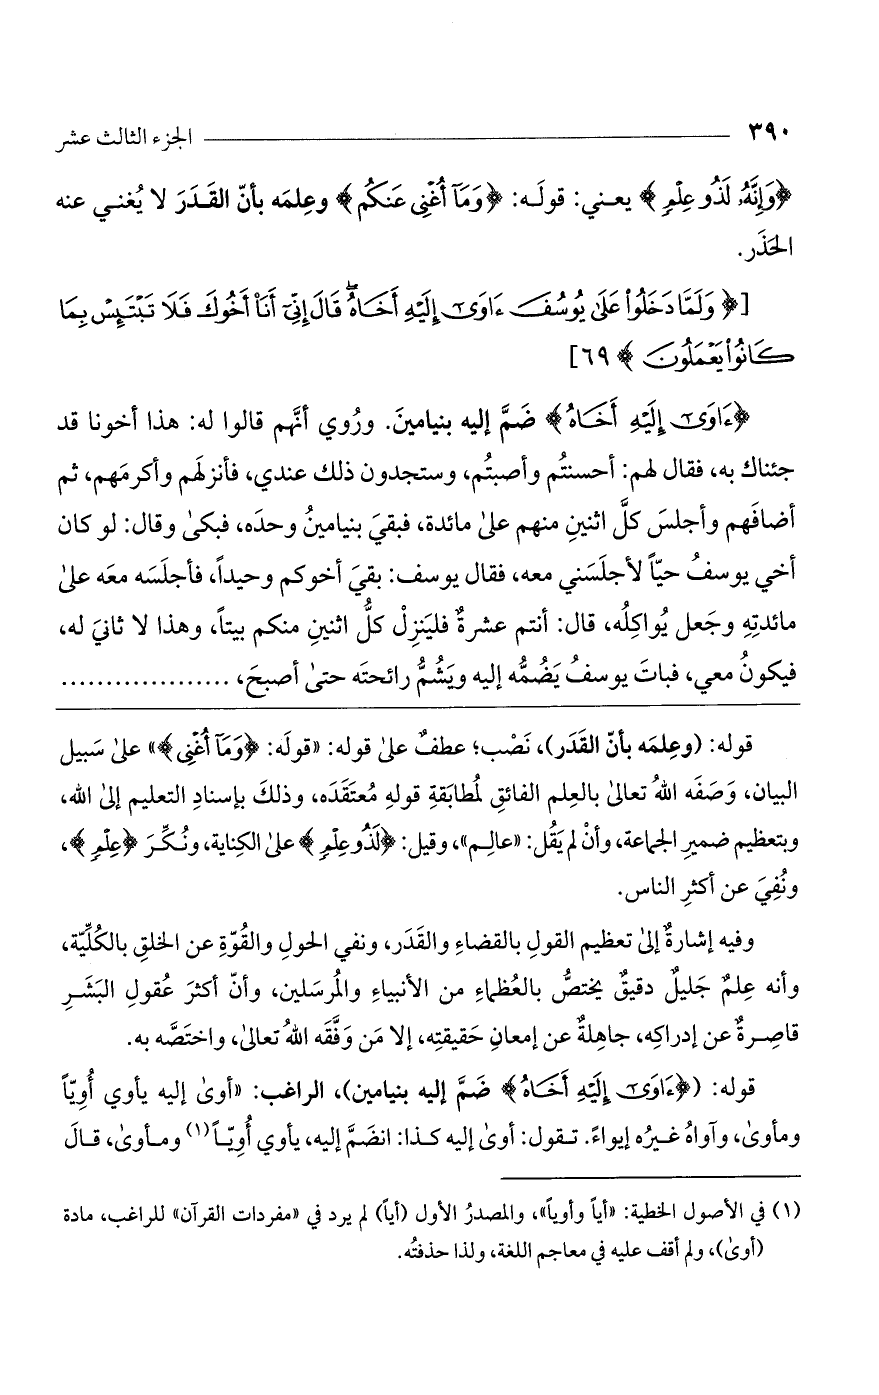 ٣٩٠ الجزء الثالث عشر
﴿وَإِنَّهُ لَذُو عِلْمٍ﴾ يعني: قولَه: ﴿وَمَآ أُغْنِى عَنكُم﴾ وعِلمَه بأنّ القَدَرَ لا يُغني عنه
الحَذَر.
[﴿وَلَمَّا دَخَلُوا۟ عَلَىٰ يُوسُفَ ءَاوَىٰٓ إِلَيْهِ أَخَاهُ ۖ قَالَ إِنِّىٓ أَنَا۠ أَخُوكَ فَلَا تَبْتَئِسْ بِمَا
كَانُوا۟ يَعْمَلُونَ﴾ ٦٩]
﴿ءَاوَىٰٓ إِلَيْهِ أَخَاهُ﴾ ضَمَّ إليه بنيامينَ. ورُوي أنَّهم قالوا له: هذا أخونا قد
جئناك به، فقال لهم: أحسنتُم وأصبتُم، وستجدون ذلك عندي، فأنزلَهم وأكرمَهم، ثم
أضافَهم وأجلسَ كلَّ اثنينِ منهم علىٰ مائدة، فبقيَ بنيامينُ وحدَه، فبكىٰ وقال: لو كان
أخي يوسفُ حيّاً لأجلَسَني معه، فقال يوسف: بقيَ أخوكم وحيداً، فأجلَسَه معَه علىٰ
مائدتِهِ وجَعل يُواكِلُه، قال: أنتم عشرةٌ فليَنزِلْ كلُّ اثنينِ منكم بيتاً، وهذا لا ثانيَ له،
فيكونُ معي، فباتَ يوسفُ يَضُمُّه إليه ويَشُمُّ رائحتَه حتىٰ أصبحَ، ...................
قوله: (وعِلمَه بأنّ القَدَر)، نَصْب؛ عطفٌ علىٰ قوله: «قولَه: ﴿وَمَآ أُغْنِى﴾» علىٰ سَبيل
البيان، وَصَفَه اللهُ تعالىٰ بالعِلم الفائقِ لمُطابَقةِ قولهِ مُعتَقَدَه، وذلكَ بإسنادِ التعليم إلىٰ الله،
وبتعظيم ضميرِ الجماعة، وأنْ لم يَقُل: «عالِم»، وقيل: ﴿لَذُو عِلْمٍ﴾ علىٰ الكِناية، ونُكِّرَ ﴿عِلْمٍ﴾،
ونُفِيَ عن أكثرِ الناس.
وفيه إشارةٌ إلىٰ تعظيم القولِ بالقضاءِ والقَدَر، ونفي الحولِ والقُوّةِ عن الخلقِ بالكُلِّيّة،
وأنه عِلمٌ جَليلٌ دقيقٌ يختصُّ بالعُظماءِ من الأنبياءِ والمُرسَلين، وأنّ أكثرَ عُقولِ البَشَرِ
قاصِرةٌ عن إدراكِه، جاهِلةٌ عن إمعانِ حَقيقتِه، إلا مَن وَفَّقَه اللهُ تعالىٰ، واختَصَّه به.
قوله: (﴿ءَاوَىٰٓ إِلَيْهِ أَخَاهُ﴾ ضَمَّ إليه بنيامين)، الراغب: «أوىٰ إليه يأوي أُوِيّاً
ومأوىٰ، وآواهُ غيرُه إيواءً. تقول: أوىٰ إليه كذا: انضَمَّ إليه، يأوي أُوِيّاً(١) ومأوىٰ، قالَ
(١) في الأصول الخطية: «أياً وأوياً»، والمصدرُ الأول (أياً) لم يرد في «مفردات القرآن» للراغب، مادة
(أوىٰ)، ولم أقف عليه في معاجم اللغة، ولذا حذفتُه.